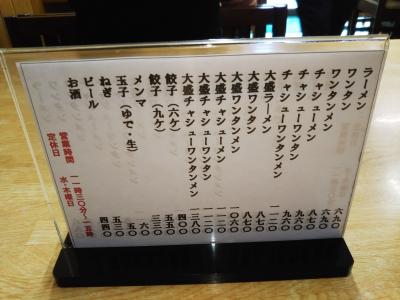 ラーメン 六九〇
ワンタン 六九〇
ワンタンメン 八七〇
チャシューメン 九六〇
チャシューワンタン 九六〇
チャシューワンタンメン 一一二〇
大盛ラーメン 八七〇
大盛ワンタン 八七〇
大盛ワンタンメン 一〇六〇
大盛チャシューメン 一一二〇
大盛チャシューワンタン 一一二〇
大盛チャシューワンタンメン 一三八〇
餃子（六ケ） 四〇〇
餃子（九ケ） 五五〇
メンマ 三三〇
玉子（ゆで・生） 六〇
ねぎ 五〇
ビール 五三〇
お酒 四四〇
営業時間 一一時三〇分〜一五時
定休日 水・木曜日